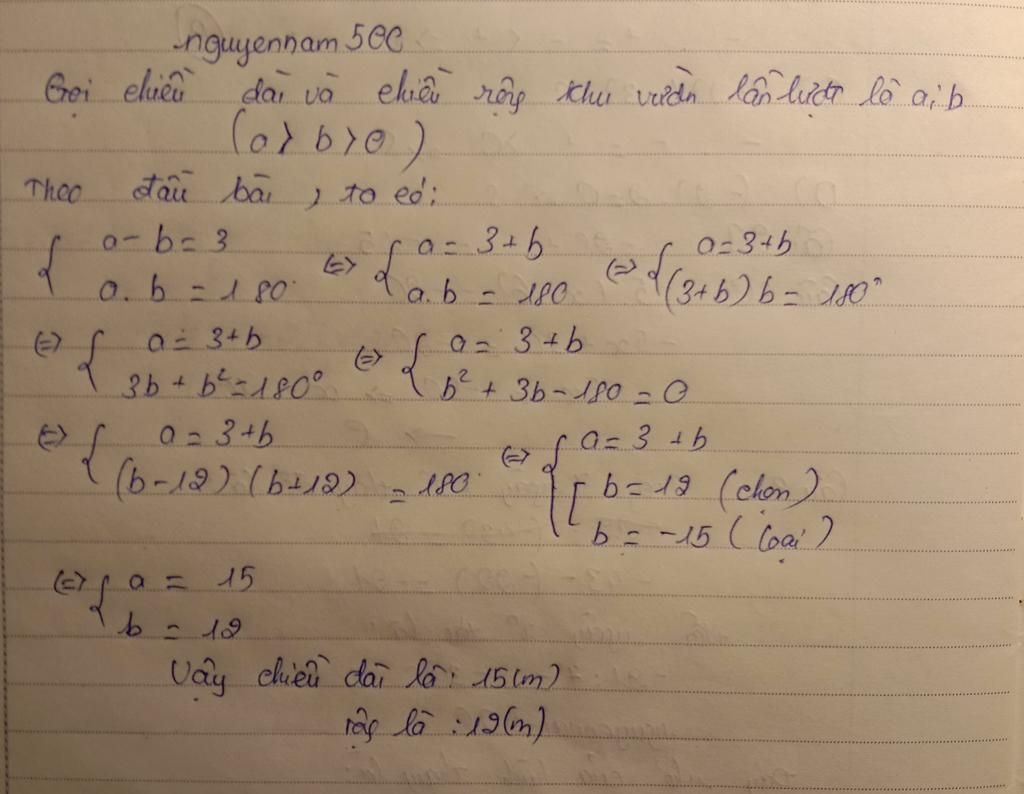 nguyennam500
Gọi chiều dài và chiều rộng khu vườn lần lượt là a; b
(a > b > 0)
Theo đầu bài, ta có:
{ a - b = 3 <=> { a = 3 + b <=> { a = 3 + b
{ a. b = 180 { a. b = 180 { (3+b) b = 180
<=> { a = 3 + b <=> { a = 3 + b
{ 3b + b² = 180 { b² + 3b - 180 = 0
<=> { a = 3 + b <=> { a = 3 + b
{ (b-12) (b+12) = 180 { [ b = 12 (chọn)
b = -15 (loại)
<=> { a = 15
{ b = 12
Vậy chiều dài là: 15(m)
rộng là : 12(m)